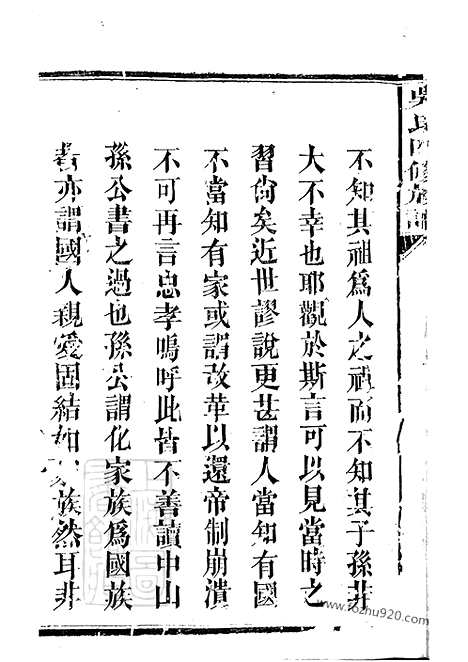 吳氏四修族譜
不知其祖爲人之祖而不知其子孫非
大不幸也耶觀於斯言可以見當時之
習尙矣近世謬說更甚謂人當知有國
不當知有家或謂改革以還帝制崩潰
不可再言忠孝嗚呼此皆不善讀中山
孫公書之過也孫公謂化家族爲國族
者亦謂國人親愛固結如家族然耳非
www.fozhu920.com